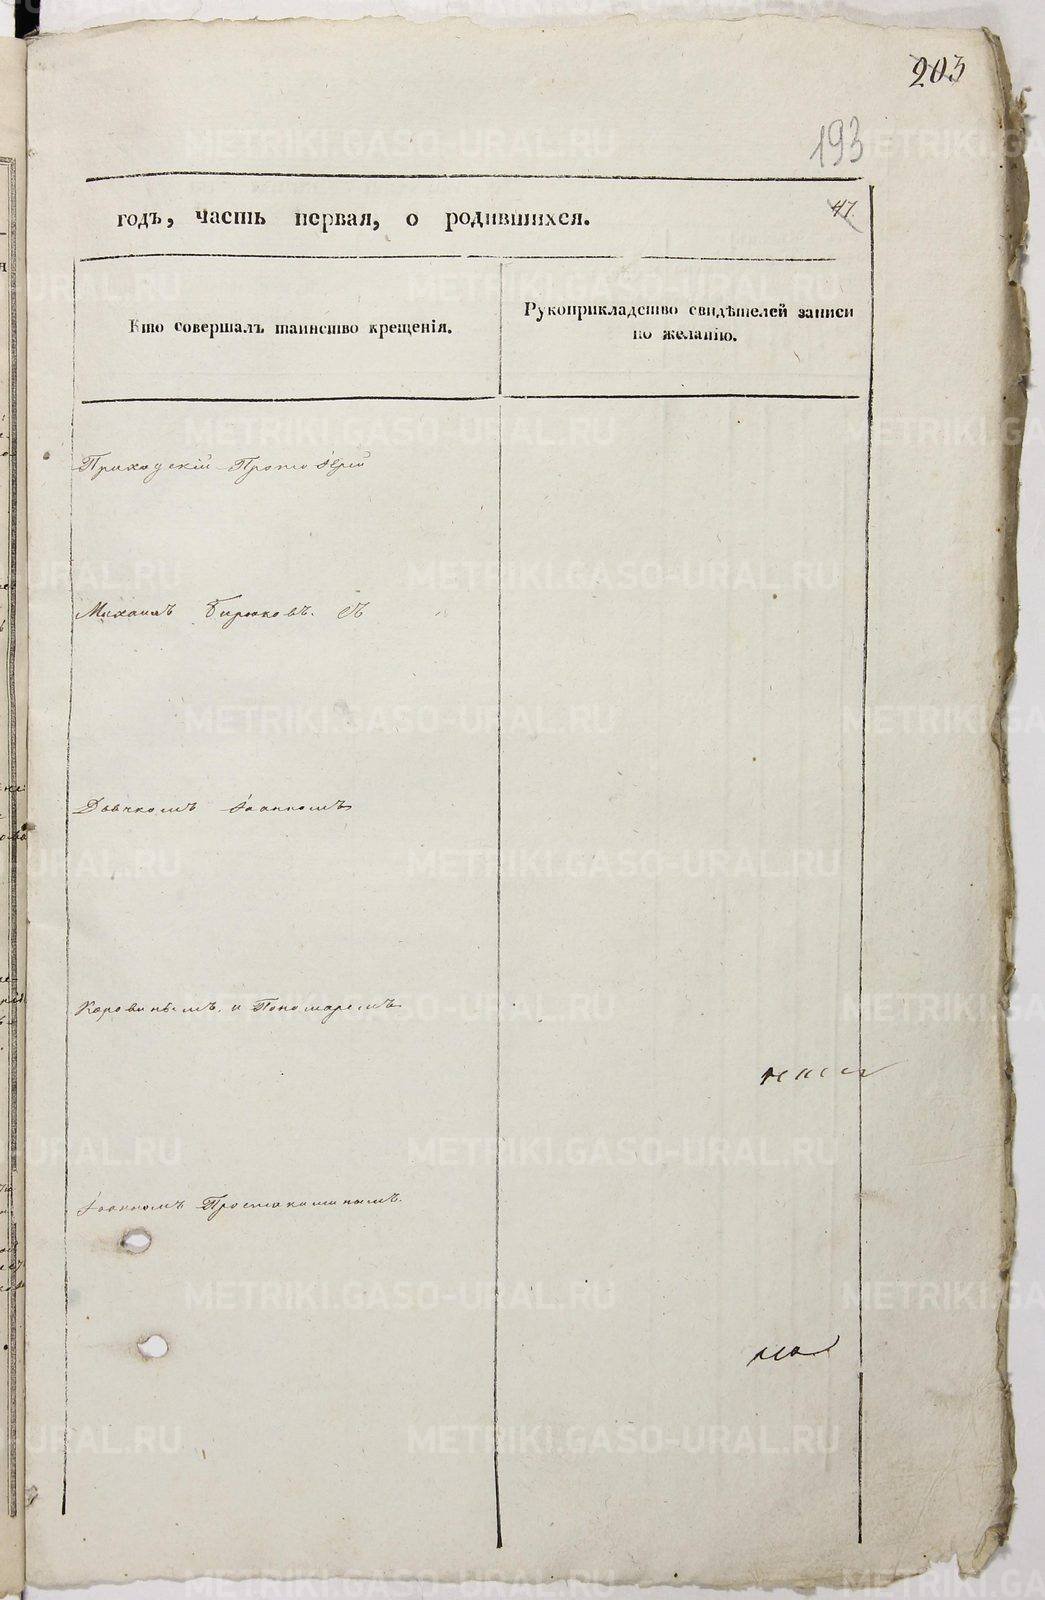 203
193
47
годъ, часть первая, о родившихся.
Кто совершалъ таинство крещенія.
Рукоприкладство свидѣтелей записи
по желанію.
Приходскій Протоіерей
Михаилъ Бирюковъ. съ
Дьячкомъ Іоанномъ
Коровинымъ. и Пономаремъ
Іоанномъ Простокишинымъ.
METRIKI.GASO-URAL.RU